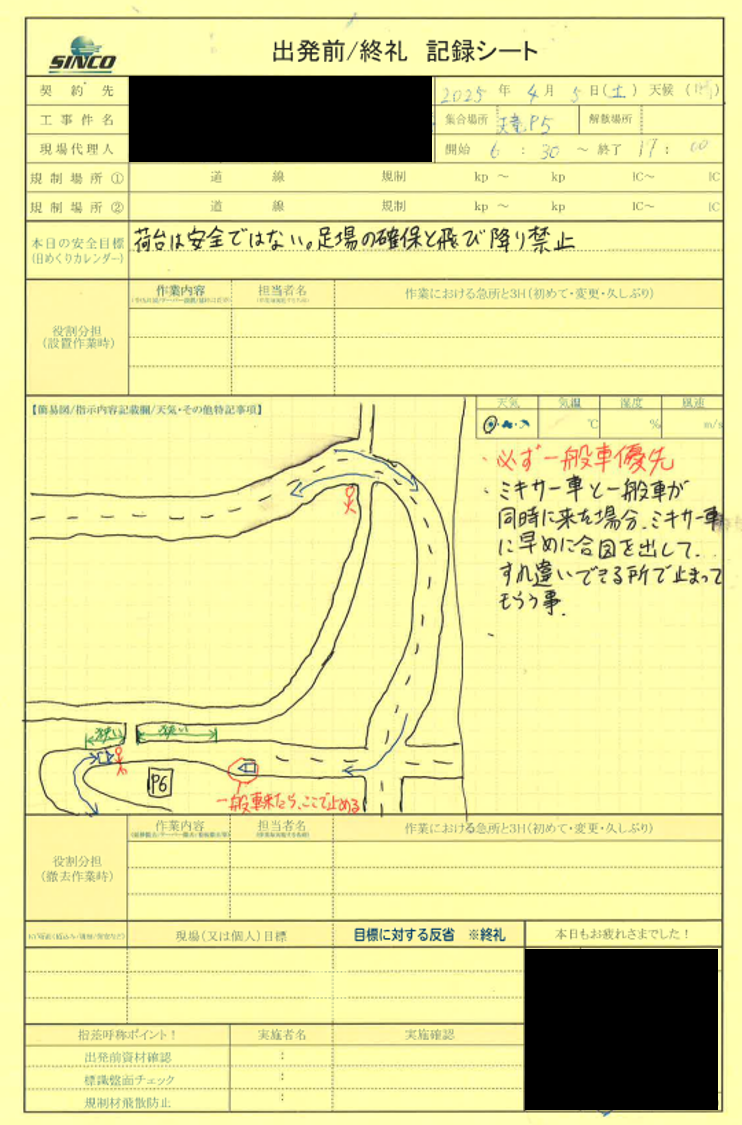 SINCO
出発前/終礼 記録シート
契約先
2025年4月5日(土) 天候(晴)
工事件名
集合場所 P5 解散場所
現場代理人
開始 6:30 ～ 終了 17:00
規制場所① 道 線 規制 kp ～ kp IC～ IC
規制場所② 道 線 規制 kp ～ kp IC～ IC
本日の安全目標
(日めくりカレンダー)
荷台は安全ではない。足場の確保と飛び降り禁止
作業内容 担当者名 作業における急所と3H(初めて・変更・久しぶり)
役割分担
(設置作業時)
【簡易図/指示内容記載欄/天気・その他特記事項】
天気 気温 湿度 風速
℃ % m/s
・必ず一般車優先
・ミキサー車と一般車が
同時に来た場分、ミキサー車
に早めに合図を出して、
すれ違いできる所で止まって
もらう事.
狭い 狭い
P6
一般車来たら、ここで止める
作業内容 担当者名 作業における急所と3H(初めて・変更・久しぶり)
役割分担
(撤去作業時)
現場(又は個人)目標 目標に対する反省 ※終礼 本日もお疲れさまでした！
指差呼称ポイント！ 実施者名 実施確認
出発前資材確認 :
標識盤面チェック :
規制材飛散防止 :